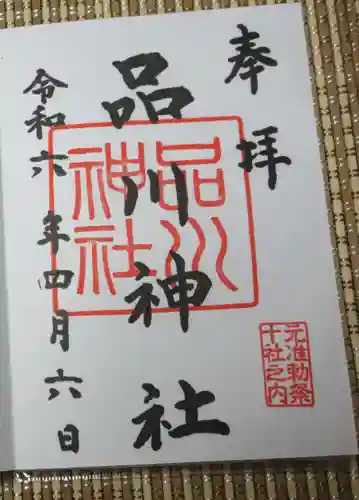 奉拝
品川神社
令和六年四月六日
品川
神社
元准勅祭
十社之内